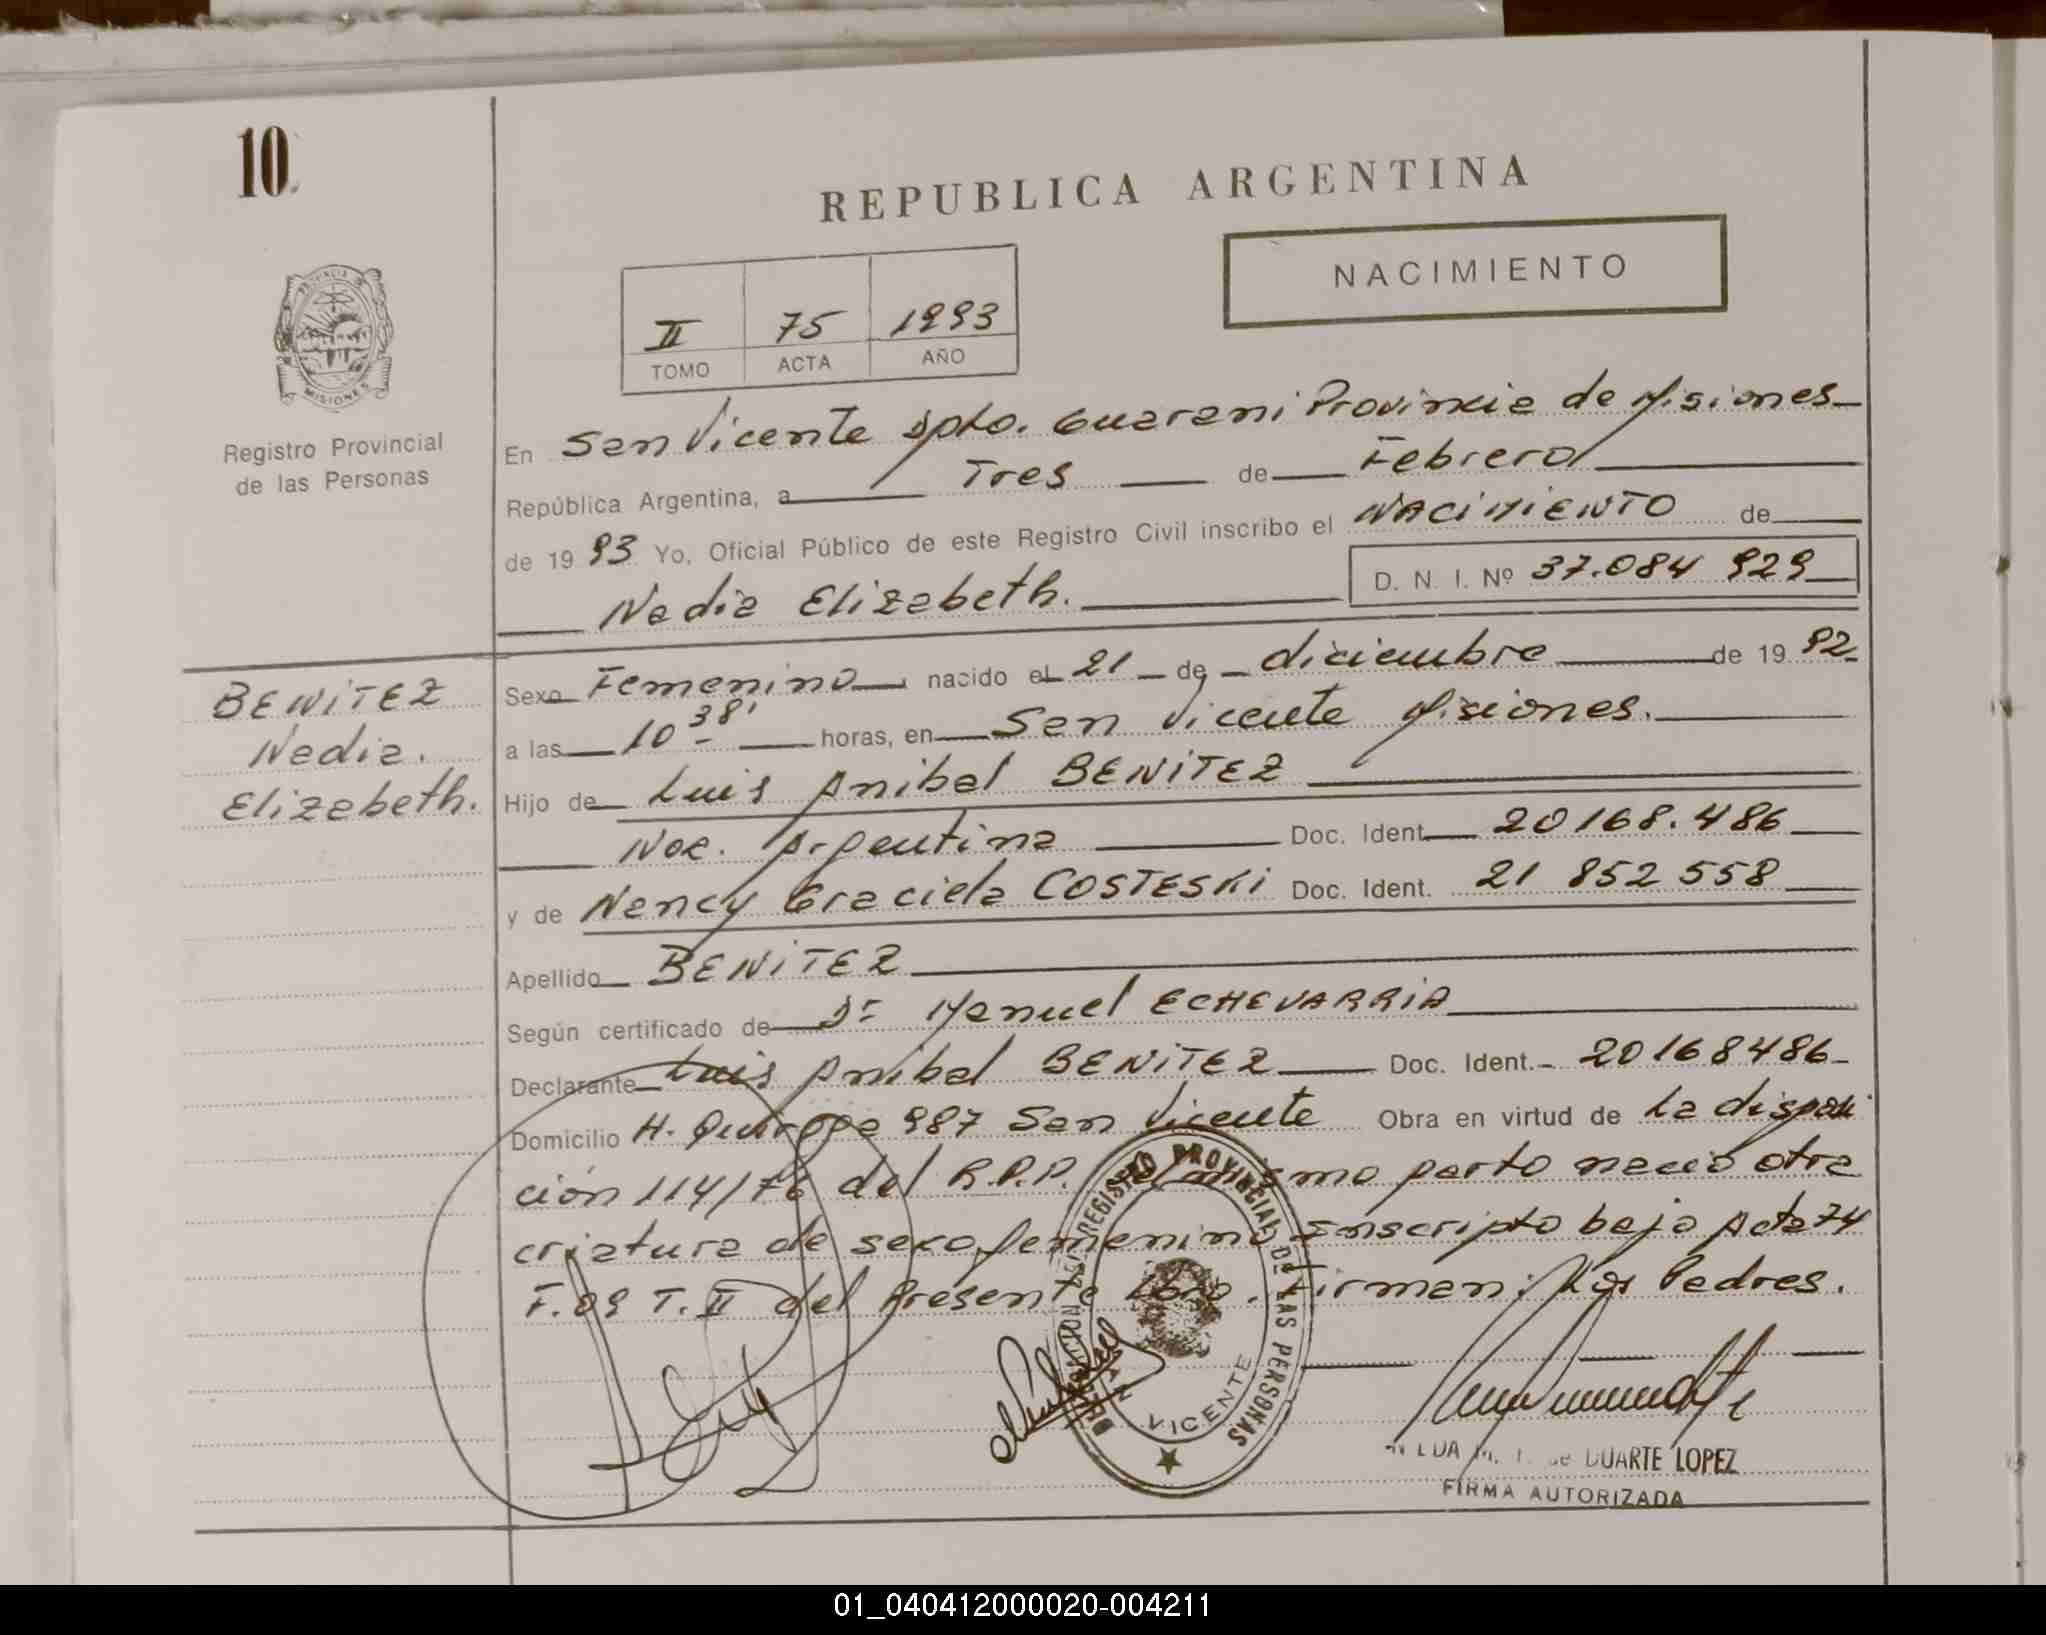 10
REPUBLICA ARGENTINA
NACIMIENTO
II 75 1993
TOMO ACTA AÑO
PROVINCIA DE
MISIONES
Registro Provincial
de las Personas
En San Vicente Dpto. Guarani Provincia de Misiones
República Argentina, a Tres de Febrero
de 1993 Yo, Oficial Público de este Registro Civil inscribo el NACIMIENTO de
Nadia Elizabeth. D. N. I. Nº 37.084 929
BENITEZ
Nadia.
Elizabeth.
Sexo Femenino nacido el 21 de diciembre de 1992
a las 10 38' horas, en San Vicente Misiones.
Hijo de Luis Anibal BENITEZ
Nac. Argentina Doc. Ident. 20168.486
y de Nancy Graciela COSTESKI Doc. Ident. 21 852 558
Apellido BENITEZ
Según certificado de Dr Manuel ECHEVARRIA
Declarante Luis Anibal BENITEZ Doc. Ident. 20168486
Domicilio H. Quiroga 987 San Vicente Obra en virtud de La disposi
ción 114/76 del R.P.P. del mismo parto nació otra
criatura de sexo femenino Inscripto bajo Acta 74
F. 09 T. II del Presente Libro. Firman: Los Padres.
REGISTRO PROVINCIAL DE LAS PERSONAS
VICENTE
DUARTE LOPEZ
FIRMA AUTORIZADA
01_040412000020-004211